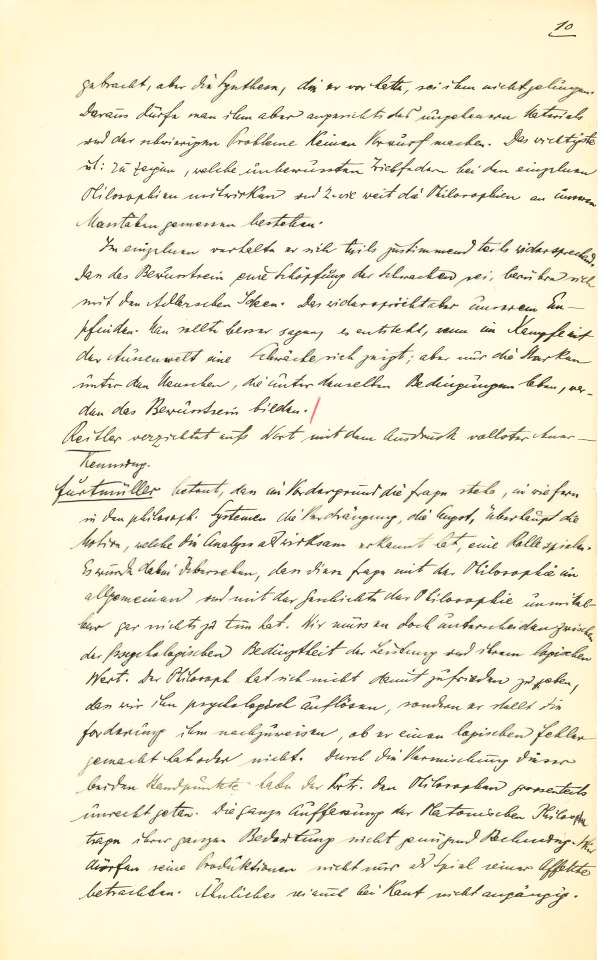 10
gebracht, aber die Synthese, die er vor hatte, sei ihm nicht gelungen.
Daraus dürfe man ihm aber angesichts des ungeheuren Materials
und der schwierigen Probleme keinen Vorwurf machen. Das wichtigste
ist: zu zeigen, welche unbewussten Triebfedern bei den einzelnen
Philosophien mitwirken und wie weit die Philosophien an unseren
Masstäben gemessen bestehen.
Im einzelnen verhalte er sich teils zustimmend teils widersprechend.
Dan das Bewustsein eine Schöpfung der Schwachen sei, berühre sich
mit den Adlerschen Ideen. Das widerspricht aber unserem Em-
pfinden. Man sollte besser sagen, es entsteht, wenn im Kampfe mit
der Aussenwelt eine Schwäche sich zeigt; aber nur die Starken
unter den Menschen, die unter denselben Bedingungen leben, wer-
den das Bewustsein bilden.
Reitler verzichtet aufs Wort mit dem Ausdruck vollster Aner-
kennung.
Furtmüller betont, dan im Vordergrund die Frage stehe, in wiefern
in den philosoph. Systemen die Verdrängung, die Angst, überhaupt die
Motive, welche die Analyse als wirksam erkannt hat, eine Rolle spielen.
Es würde dabei übersehen, dan diese Frage mit der Philosophie im
allgemeinen und mit der Geschichte der Philosophie unmittel-
bar gar nichts zu tun hat. Wir müssen doch unterscheiden zwischen
der psychologischen Bedingtheit der Leistung und ihrem logischen
Wert. Der Philosoph hat sich nicht damit zufrieden zu geben,
dan wir ihn psychologisch auflösen, sondern er stellt die
Forderung ihm nachzuweisen, ob er einen logischen Fehler
gemacht hat oder nicht. Durch die Vermischung dieser
beiden Standpunkte habe der Vortr. den Philosophen grossenteils
unrecht getan. Die ganze Auffassung der Platonischen Philosophie
trage ihrer ganzen Bedeutung nicht genügend Rechnung. Wir
dürfen seine Produktionen nicht nur als Spiel seiner Affekte
betrachten. Ähnliches sei auch bei Kant nicht angängig.